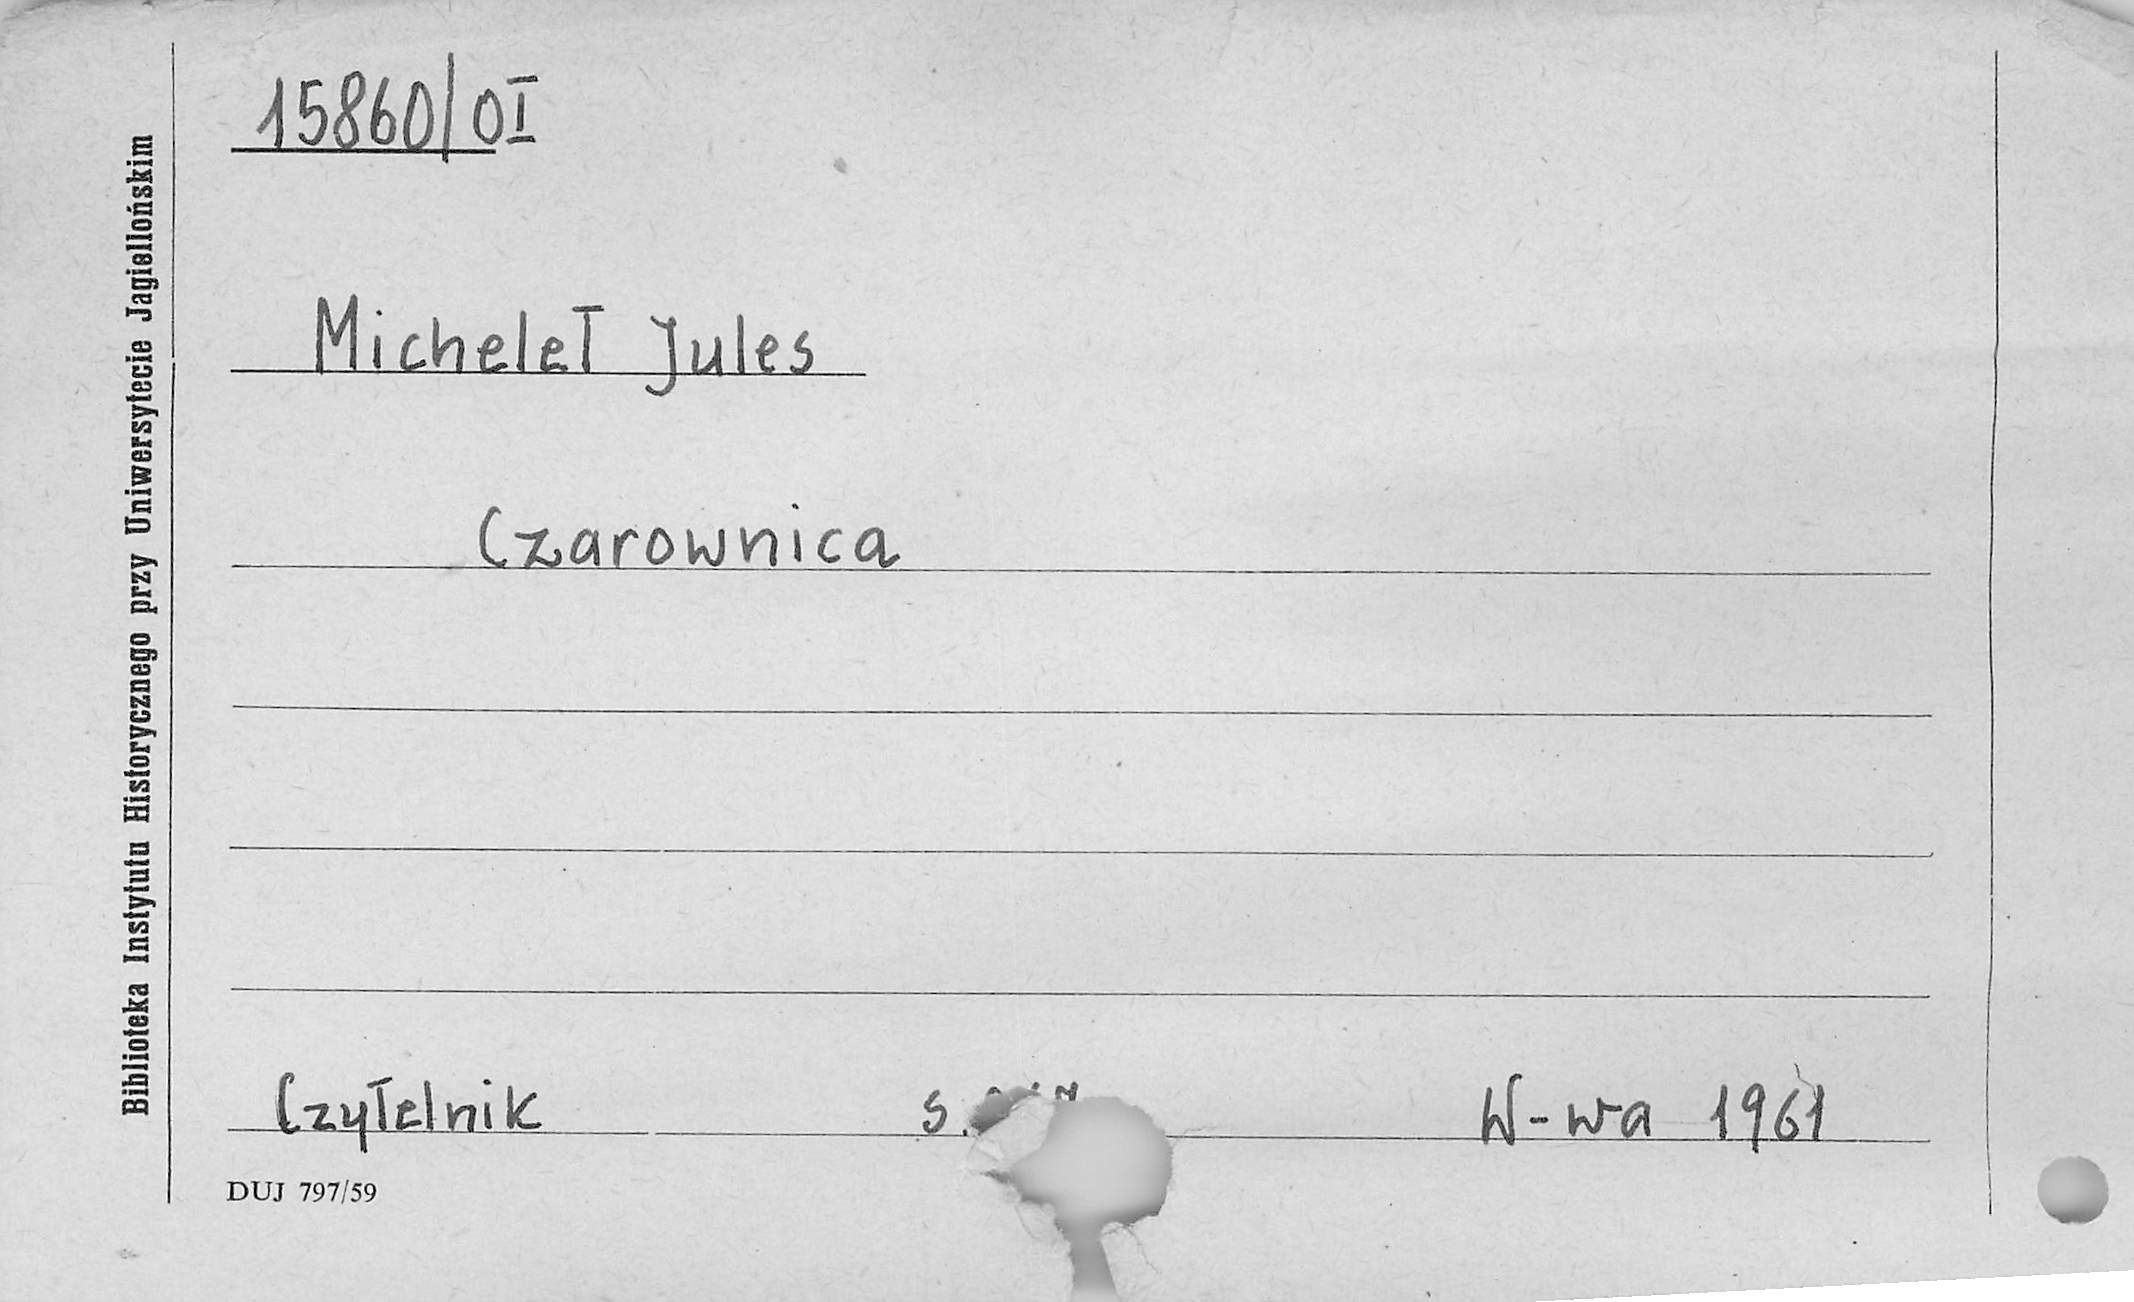 15860/OI
Michelet Jules
Czarownica
Czytelnik s. W-wa 1961
DUJ 797/59
Biblioteka Instytutu Historycznego przy Uniwersytecie Jagiellońskim